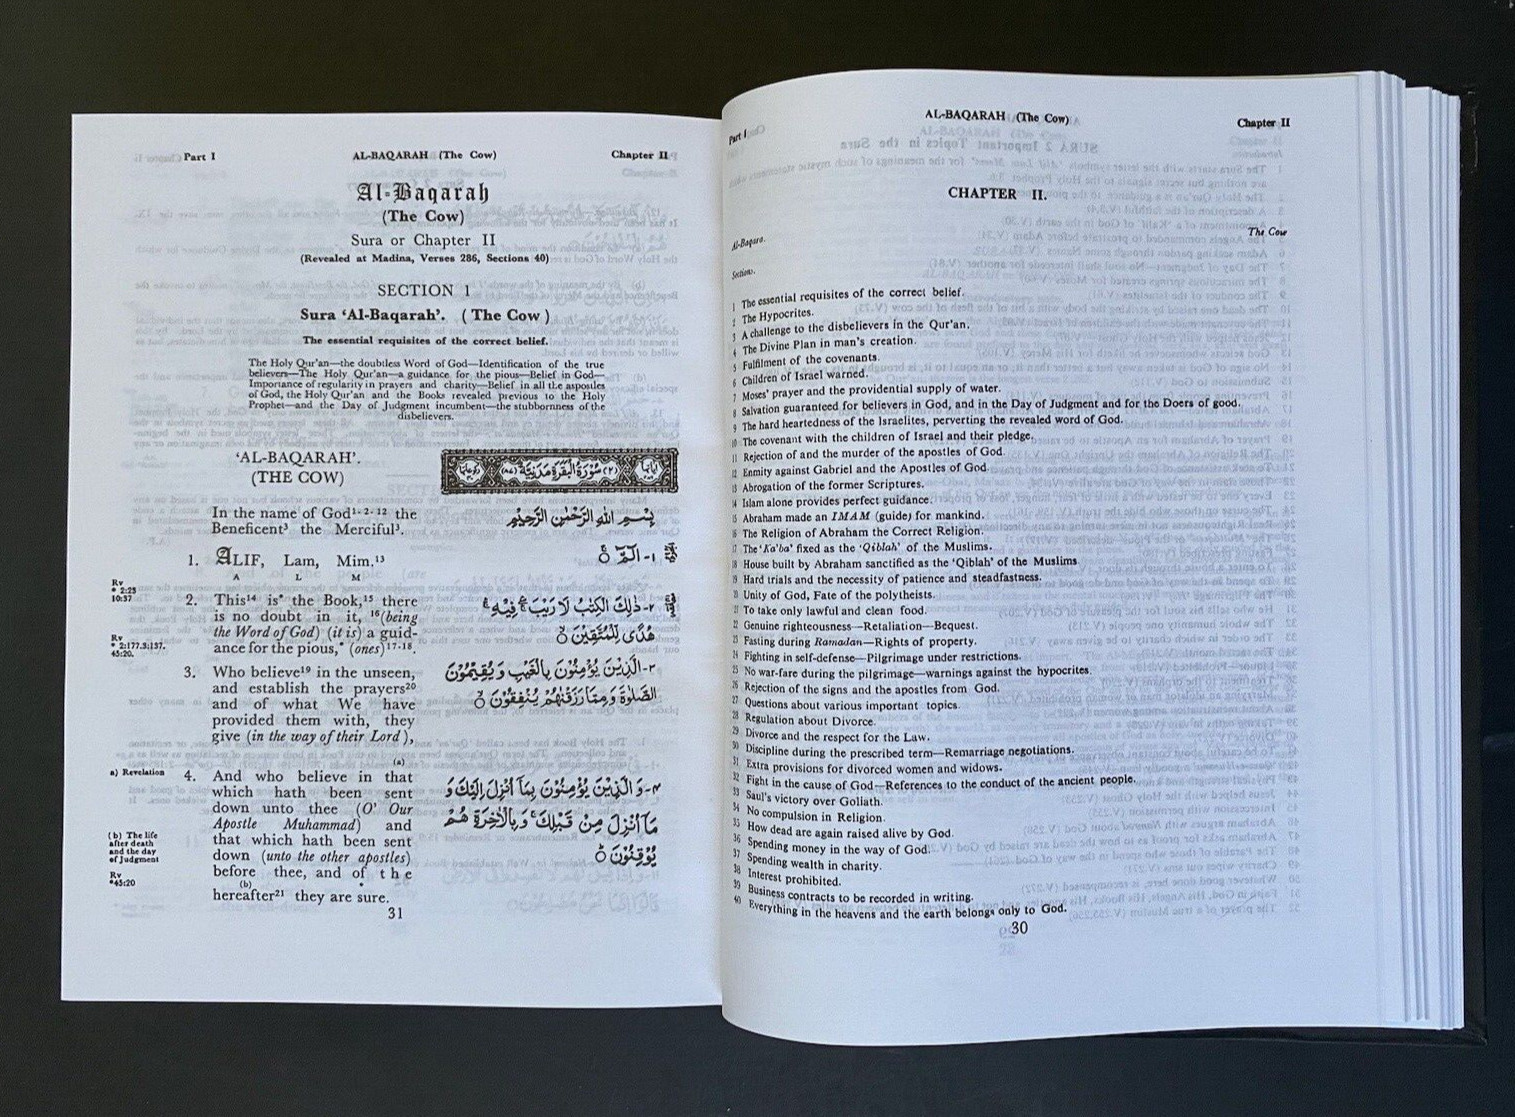 Part I
AL-BAQARAH (The Cow)
Chapter II
CHAPTER II.
Al-Baqara.
The Cow
Sections.
1 The essential requisites of the correct belief.
2 The Hypocrites.
3 A challenge to the disbelievers in the Qur'an.
4 The Divine Plan in man's creation.
5 Fulfilment of the covenants.
6 Children of Israel warned.
7 Moses' prayer and the providential supply of water.
8 Salvation guaranteed for believers in God, and in the Day of Judgment and for the Doers of good.
9 The hard heartedness of the Israelites, perverting the revealed word of God.
10 The covenant with the children of Israel and their pledge.
11 Rejection of and the murder of the apostles of God
12 Enmity against Gabriel and the Apostles of God
13 Abrogation of the former Scriptures.
14 Islam alone provides perfect guidance.
15 Abraham made an IMAM (guide) for mankind.
16 The Religion of Abraham the Correct Religion.
17 The 'Ka'ba' fixed as the 'Qiblah' of the Muslims.
18 House built by Abraham sanctified as the 'Qiblah' of the Muslims
19 Hard trials and the necessity of patience and steadfastness.
20 Unity of God, Fate of the polytheists.
21 To take only lawful and clean food.
22 Genuine righteousness—Retaliation—Bequest.
23 Fasting during Ramadan—Rights of property.
24 Fighting in self-defense—Pilgrimage under restrictions.
25 No war-fare during the pilgrimage—warnings against the hypocrites
26 Rejection of the signs and the apostles from God.
27 Questions about various important topics.
28 Regulation about Divorce.
29 Divorce and the respect for the Law.
30 Discipline during the prescribed term—Remarriage negotiations.
31 Extra provisions for divorced women and widows.
32 Fight in the cause of God—References to the conduct of the ancient people.
33 Saul's victory over Goliath.
34 No compulsion in Religion.
35 How dead are again raised alive by God.
36 Spending money in the way of God.
37 Spending wealth in charity.
38 Interest prohibited.
39 Business contracts to be recorded in writing.
40 Everything in the heavens and the earth belongs only to God.
30
Part I
AL-BAQARAH (The Cow)
Chapter II
Al-Baqarah
(The Cow)
Sura or Chapter II
(Revealed at Madina, Verses 286, Sections 40)
SECTION 1
Sura 'Al-Baqarah'. (The Cow)
The essential requisites of the correct belief.
The Holy Qur'an—the doubtless Word of God—Identification of the true
believers—The Holy Qur'an—a guidance for the pious—Belief in God—
Importance of regularity in prayers and charity—Belief in all the aspostles
of God, the Holy Qur'an and the Books revealed previous to the Holy
Prophet—and the Day of Judgment incumbent—the stubbornness of the
disbelievers.
'AL-BAQARAH'.
(THE COW)
(۲) سُورَةُ الْبَقَرَةِ مَدَنِيَّةٌ (۸۷)
In the name of God1-2-12 the
Beneficent3 the Merciful3.
بِسْمِ اللهِ الرَّحْمٰنِ الرَّحِيْمِ
1. ALIF, Lam, Mim.13
A L M
۱- الٓمّٓ
Rv
* 2:23
10:37
2. This14 is* the Book,15 there
is no doubt in it, 16(being
the Word of God) (it is) a guid-
ance for the pious,* (ones)17-18.
Rv
* 2:177.3:137.
45:20.
۲- ذٰلِكَ الْكِتٰبُ لَا رَيْبَ فِيْهِ
هُدًى لِّلْمُتَّقِيْنَ
3. Who believe19 in the unseen,
and establish the prayers20
and of what We have
provided them with, they
give (in the way of their Lord),
۳- الَّذِيْنَ يُؤْمِنُوْنَ بِالْغَيْبِ وَيُقِيْمُوْنَ
الصَّلٰوةَ وَمِمَّا رَزَقْنٰهُمْ يُنْفِقُوْنَ
(a)
a) Revelation
4. And who believe in that
which hath been sent
down unto thee (O' Our
Apostle Muhammad) and
that which hath been sent
down (unto the other apostles)
before thee, and of the
(b)
hereafter21 they are sure.
(b) The life
after death
and the day
of Judgment
Rv
*45:20
۴- وَالَّذِيْنَ يُؤْمِنُوْنَ بِمَا اُنْزِلَ اِلَيْكَ وَ
مَا اُنْزِلَ مِنْ قَبْلِكَ وَبِالْاٰخِرَةِ هُمْ
يُوْقِنُوْنَ
31